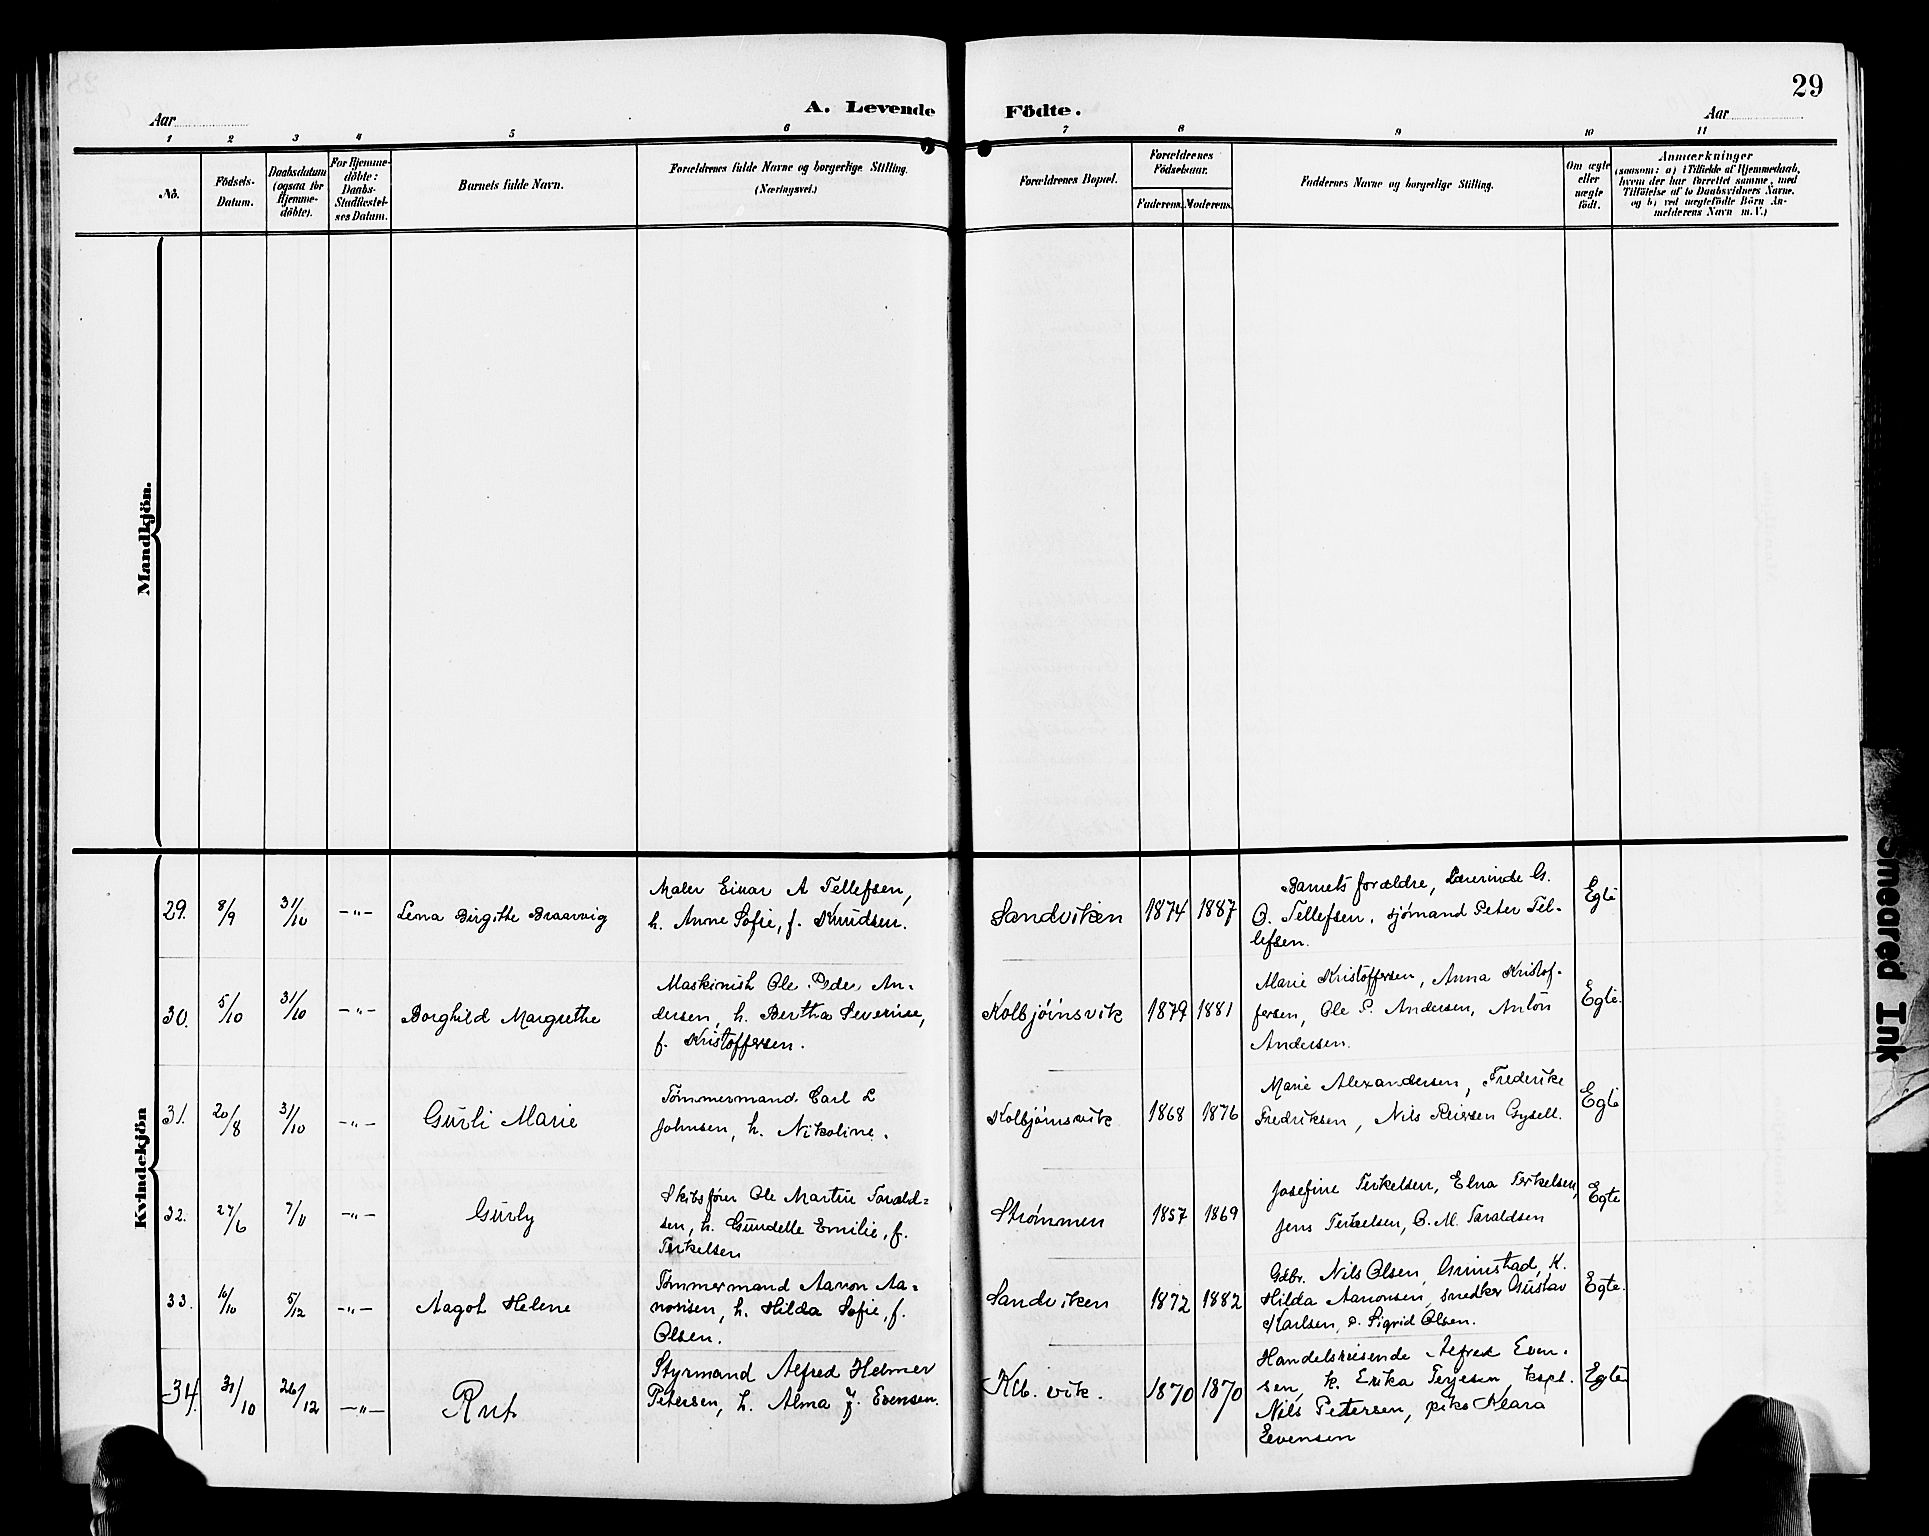 29
A. Levende Födte.
Aar
Aar
1 2 3 4 5 6 7 8 9 10 11
No.
Födsels-
Datum.
Daabsdatum
(ogsaa for
Hjemme-
döbte).
For Hjemme-
döbte:
Daabs-
Stadfæstel-
ses Datum.
Barnets fulde Navn.
Forældrenes fulde Navne og borgerlige Stilling.
(Næringsvei.)
Forældrenes Bopæl.
Forældrenes
Födselsaar.
Faderens. Moderens.
Faddernes Navne og borgerlige Stilling.
Om ægte
eller
uægte
födt.
Anmærkninger
(saasom: a) i Tilfælde af Hjemmedaab,
hvem der har forrettet samme, med
Tilföielse af to Daabsvidners Navne.
og b) ved uægtefödte Börn An-
melderens Navn m. V.)
Mandkjön.
Kvindekjön
29. 8/9 31/10 -"- Lena Birgitte Braarvig
Maler Einar A Tellefsen,
h. Anne Sofie, f. Knudsen.
Sandviken 1874 1887
Barnets forældre, Lærerinde G.
O. Tellefsen, sjømand Peter Tel-
lefsen.
Egte
30. 5/10 31/10 -"- Borghild Margrethe
Maskinist Ole Peder An-
dersen, h. Bertha Severine,
f. Kristoffersen.
Kolbjørnsvik 1879 1881
Marie Kristoffersen, Anna Kristof-
fersen, Ole P. Andersen, Anton
Andersen.
Egte.
31. 20/8 31/10 -"- Gurli Marie
Tømmermand Carl L
Johnsen, h. Nikoline.
Kolbjørnsvik 1868 1876
Marie Alexandersen, Frederike
Fredriksen, Nils Reiersen Gysell.
Egte
32. 27/6 7/11 -"- Gurly
Skibsfører Ole Martin Tarald-
sen, h. Gundelle Emilie, f.
Terkelsen
Strømmen 1857 1869
Josefine Terkelsen, Elna Terkelsen,
Jens Terkelsen, O. M. Taraldsen
Egte
33. 10/10 5/12 -"- Aagot Helene
Tømmermand Aanon Aa-
nonsen, h. Hilda Sofie, f.
Olsen.
Sandviken 1872 1882
Gdbr. Nils Olsen, Grimstad, K.
Hilda Aanonsen, snedker Gustav
Karlsen, p. Sigrid Olsen.
Egte.
34. 31/10 26/12 -"- Rut
Styrmand Alfred Helmer
Petersen, h. Alma J. Evensen.
Klb. vik. 1870 1870
Handelsreisende Alfred Even-
sen, k. Erika Terjesen, kapt.
Nils Petersen, pike Klara
Evensen
Egte
Smeared Ink